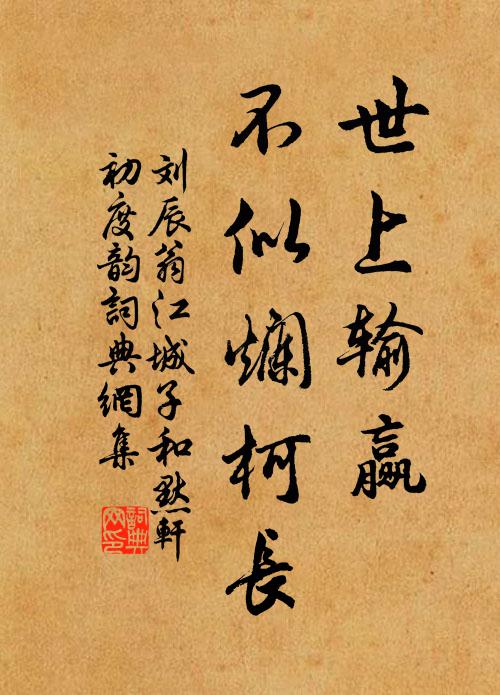 世上输赢
不似爛柯長
刘辰翁江城子和默軒
初度韵詞典網集
詞典网印